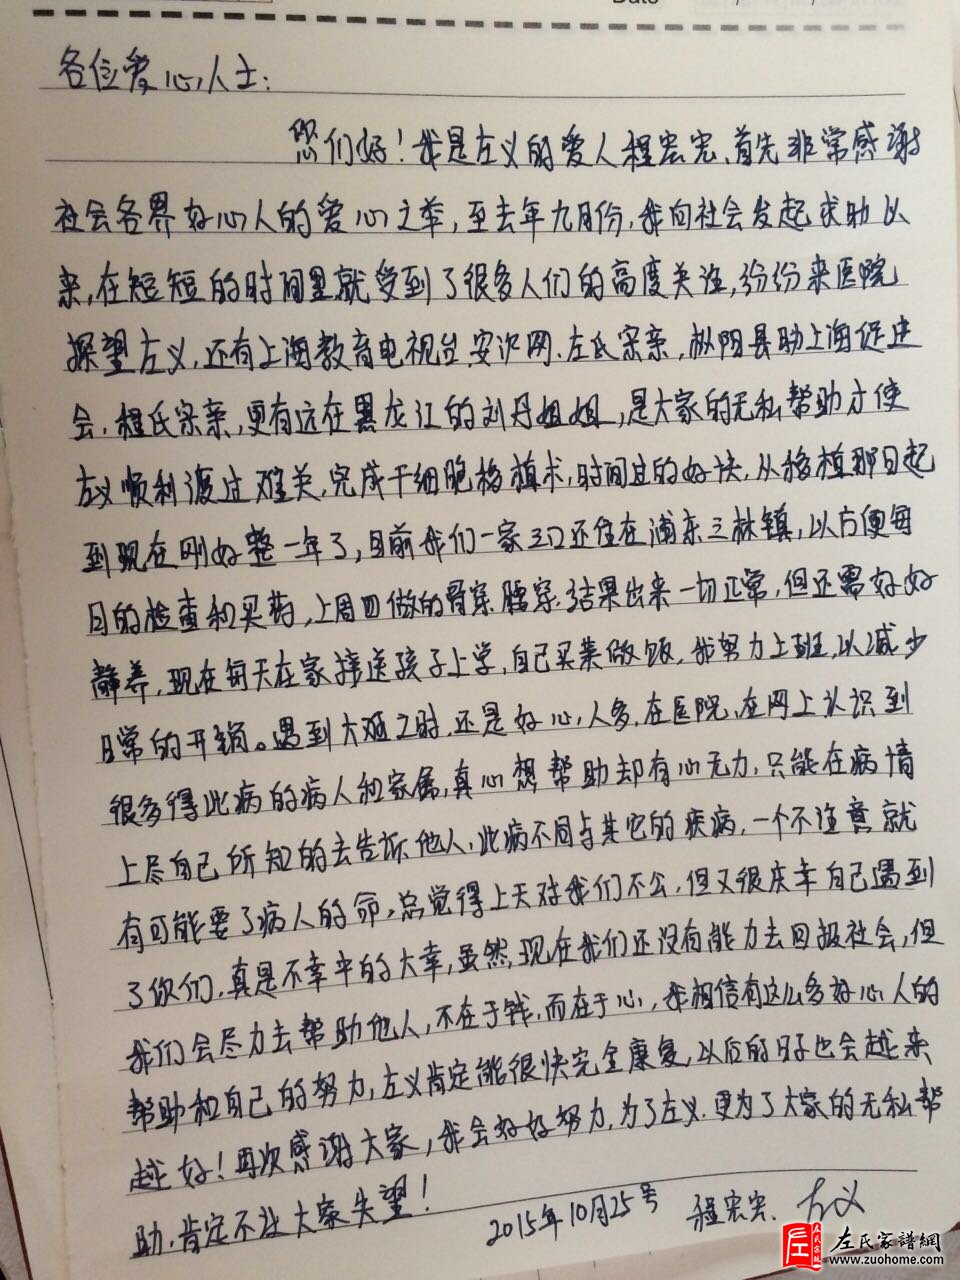 Date
各位爱心人士：
您们好！我是左义的爱人程宏宪、首先非常感谢
社会各界好心人的爱心之举，至去年九月份，我向社会发起求助以
来，在短短的时间里就受到了很多人们的高度关注，纷纷来医院
探望左义，还有上海教育电视台、安沪网、左氏宗亲，枞阳县助上海促进
会，程氏宗亲，更有远在黑龙江的刘丹姐姐，是大家的无私帮助才使
左义顺利渡过难关，完成干细胞移植术，时间过的好快，从移植那日起
到现在刚好整一年了，目前我们一家三口还住在浦东三林镇，以方便每
日的检查和买药，上周四做的骨穿、腰穿，结果出来一切正常，但还需好好
静养，现在每天在家接送孩子上学，自己买菜做饭，我努力上班，以减少
日常的开销。遇到大难之时，还是好心人多，在医院、在网上认识到
很多得此病的病人和家属，真心想帮助却有心无力，只能在病情
上尽自己所知的去告诉他人，此病不同与其它的疾病，一个不注意就
有可能要了病人的命，总觉得上天对我们不公，但又很庆幸自己遇到
了你们，真是不幸中的大幸，虽然，现在我们还没有能力去回报社会，但
我们会尽力去帮助他人，不在于钱，而在于心，我相信有这么多好心人的
帮助和自己的努力，左义肯定能很快完全康复，以后的日子也会越来
越好！再次感谢大家，我会好好努力，为了左义，更为了大家的无私帮
助，肯定不让大家失望！
2015年10月25号 程宏宪、左义
左氏家譜網
www.zuohome.com